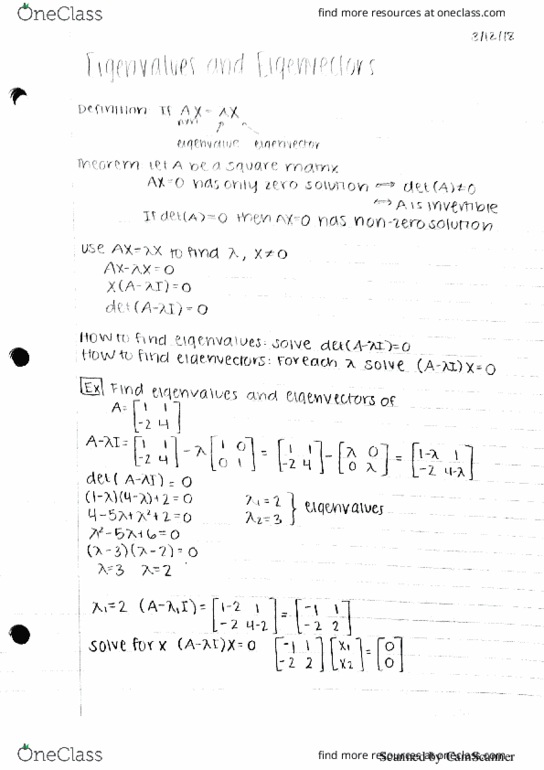 OneClass
find more resources at oneclass.com
3/12/18
Eigenvalues and Eigenvectors
Definition If AX = λX
n×n
eigenvalue eigenvector
Theorem Let A be a square matrix
AX=0 has only zero solution ⟺ det(A)≠0
⟺ A is invertible
If det(A)=0 then AX=0 has non-zero solution
use AX=λX to find λ, X≠0
AX-λX=0
X(A-λI)=0
det(A-λI)=0
How to find eigenvalues: solve det(A-λI)=0
How to find eigenvectors: For each λ solve (A-λI)X=0
Ex Find eigenvalues and eigenvectors of
A= [1 1; -2 4]
A-λI = [1 1; -2 4] - λ [1 0; 0 1] = [1 1; -2 4] - [λ 0; 0 λ] = [1-λ 1; -2 4-λ]
det(A-λI) = 0
(1-λ)(4-λ)+2=0 λ1=2
4-5λ+λ²+2=0 λ2=3 } eigenvalues
λ²-5λ+6=0
(λ-3)(λ-2)=0
λ=3 λ=2
λ1=2 (A-λ1I) = [1-2 1; -2 4-2] = [-1 1; -2 2]
solve for x (A-λI)X=0 [-1 1; -2 2] [x1; x2] = [0; 0]
OneClass
find more resources at oneclass.com
Scanned by CamScanner